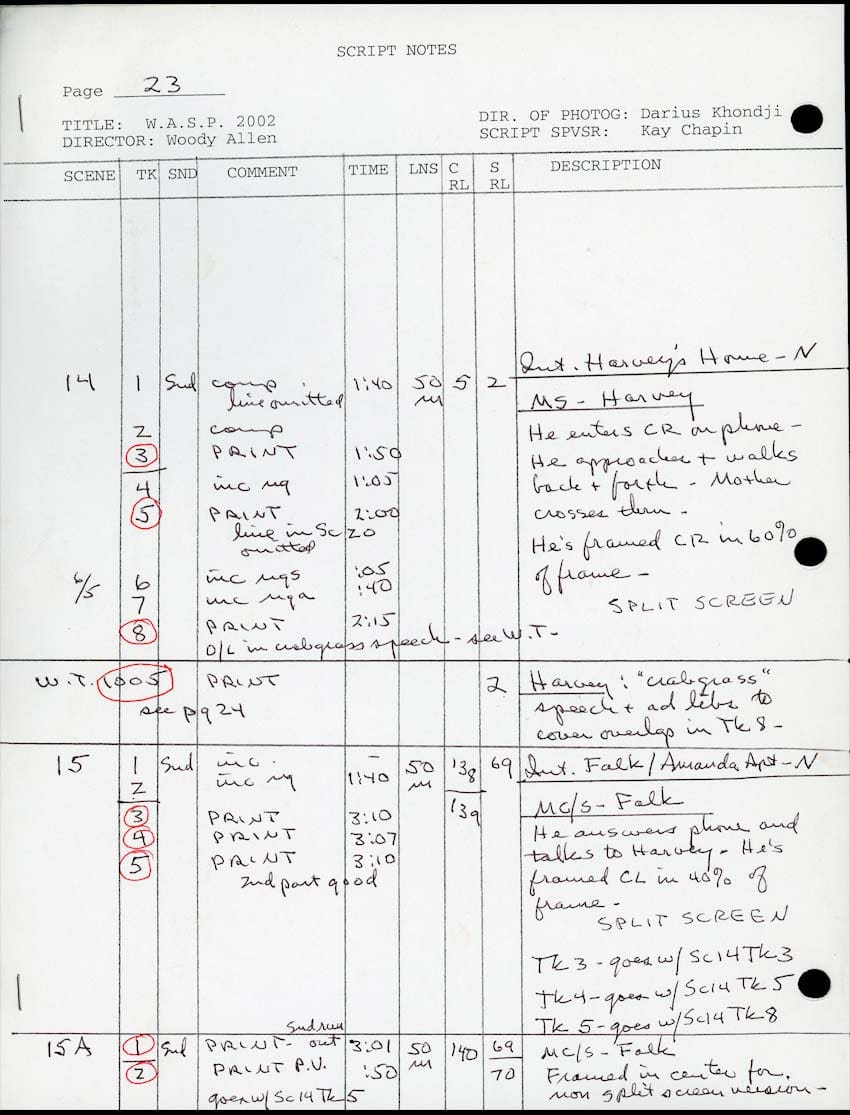 SCRIPT NOTES
Page 23
TITLE: W.A.S.P. 2002
DIRECTOR: Woody Allen
DIR. OF PHOTOG: Darius Khondji
SCRIPT SPVSR: Kay Chapin
SCENE TK SND COMMENT TIME LNS C RL S RL DESCRIPTION
Int. Harvey's Home - N
14 1 Snd comp 1:40 50 m 5 2 MS - Harvey
line omitted
2 comp He enters CR on phone -
3 PRINT 1:50 He approaches + walks
4 inc ng 1:05 back + forth - Mother
5 PRINT 2:00 crosses thru -
line in Sc 20
omitted
He's framed CR in 60%
of frame -
6/5 6 inc ngs :05
7 inc nga :40
SPLIT SCREEN
8 PRINT 2:15
O/L in crabgrass speech - see W.T. -
W.T. 1005 PRINT 2 Harvey: "crabgrass"
see pg 24 speech + ad libs to
cover overlap in Tk 8 -
15 1 Snd inc. - 50 m 138 69 Int. Falk / Amanda Apt - N
2 inc ng 1:40
139 MC/S - Falk
3 PRINT 3:10 He answers phone and
4 PRINT 3:07 talks to Harvey - He's
5 PRINT 3:10 framed CL in 40% of
2nd part good frame -
SPLIT SCREEN
Tk 3 - goes w/ Sc 14 Tk 3
Tk 4 - goes w/ Sc 14 Tk 5
Tk 5 - goes w/ Sc 14 Tk 8
Snd run
15A 1 Snd PRINT - out 3:01 50 m 140 69 MC/S - Falk
2 PRINT P.U. :50 70 Framed in center for
goes w/ Sc 14 Tk 5 non split screen version -